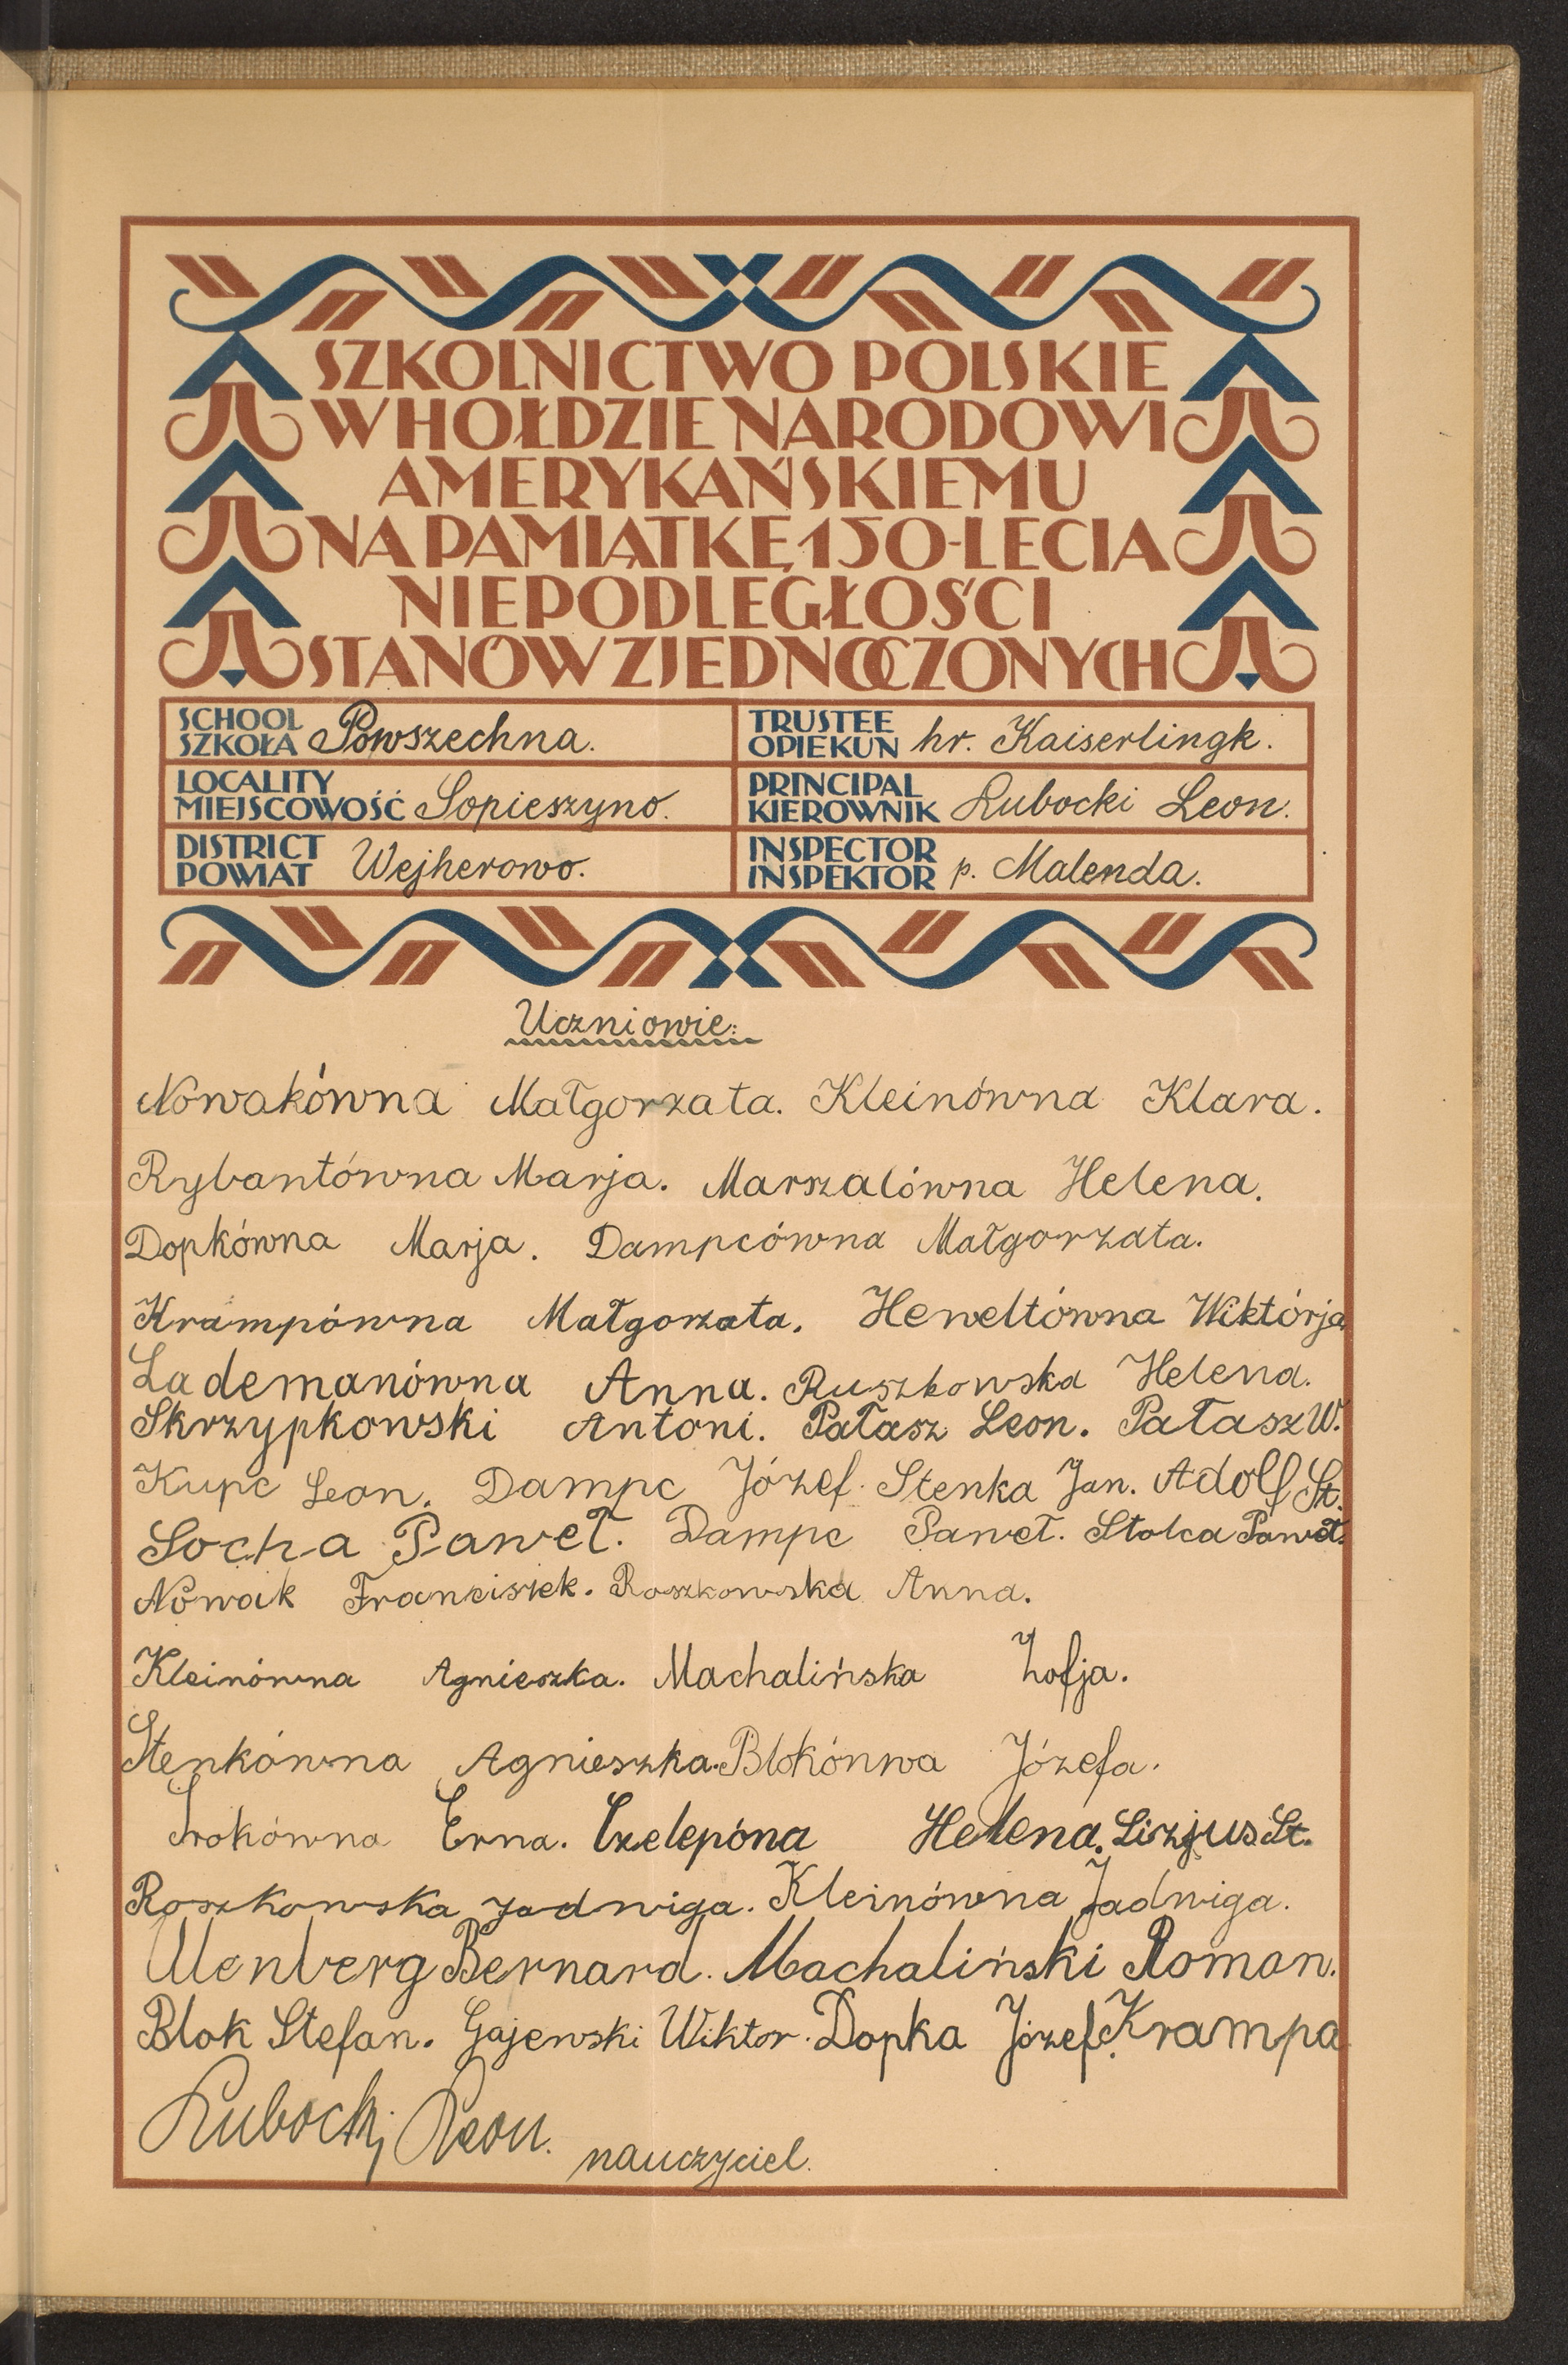 SZKOLNICTWO POLSKIE
W HOŁDZIE NARODOWI
AMERYKAŃSKIEMU
NA PAMIĄTKĘ 150-LECIA
NIEPODLEGŁOŚCI
STANÓW ZJEDNOCZONYCH
SCHOOL
SZKOŁA Powszechna.
TRUSTEE
OPIEKUN hr. Kaiserlingk.
LOCALITY
MIEJSCOWOŚĆ Sopieszyno.
PRINCIPAL
KIEROWNIK Lubocki Leon.
DISTRICT
POWIAT Wejherowo.
INSPECTOR
INSPEKTOR p. Malenda.
Uczniowie:
Nowakówna Małgorzata. Kleinówna Klara.
Rybantówna Marja. Marszalówna Helena.
Dopkówna Marja. Dampcówna Małgorzata.
Krampówna Małgorzata. Heweltówna Wiktórja
Lademanówna Anna. Ruszkowska Helena.
Skrzypkowski Antoni. Pałasz Leon. Pałasz W.
Kupc Leon. Dampc Józef. Stenka Jan. Adolf St.
Socha Paweł. Dampc Paweł. Stolca Paweł.
Nowak Franciszek. Roszkowska Anna.
Kleinówna Agnieszka. Machalińska Zofja.
Stenkówna Agnieszka. Blokónwa Józefa.
Srokówna Erna. Czelepóna Helena. Lizjus St.
Roszkowska Jadwiga. Kleinówna Jadwiga.
Ulenberg Bernard. Machaliński Roman.
Blok Stefan. Gajewski Wiktor. Dopka Józef. Krampa
Lubocki Leon. nauczyciel.